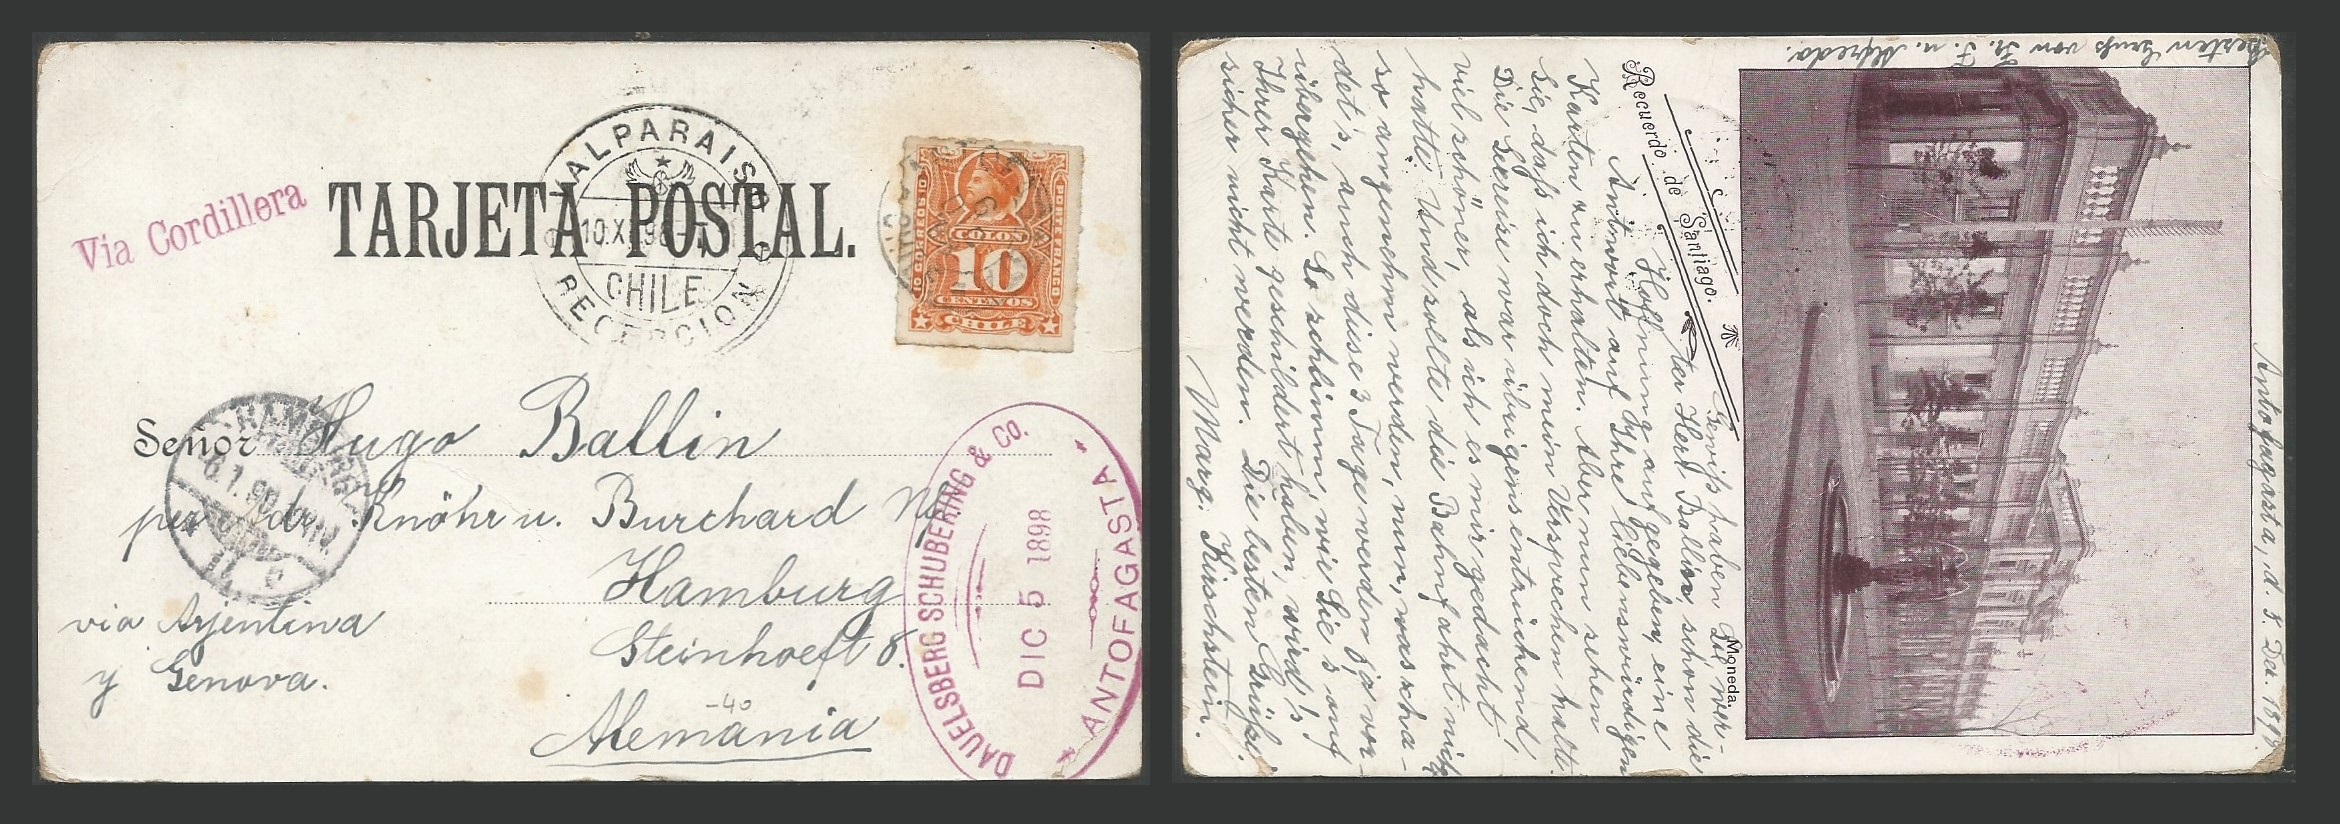 Via Cordillera
TARJETA POSTAL.
VALPARAISO
10.XII.98
CHILE
RECEPCION
10 CENTAVOS
PORTE FRANCO
COLON
10
CENTAVOS
CHILE
Señor Hugo Ballin
per adr. Knöhr u. Burchard Nfl.
Hamburg
Steinhoeft 8.
Alemánia
-40
via Arjentina
y Genova.
HAMBURG
6.1.99
DAUELSBERG SCHUBERING & Co.
DIC 5 1898
ANTOFAGASTA
Besten Gruß von Fr. F. u. Alfredo.
Antofagasta, d. 5. Dez. 1898.
Recuerdo de Santiago.
Moneda.
Gewiß haben Sie wer-
ter Herr Ballin, schon die
Hoffnung aufgegeben, eine
Antwort auf Ihre liebenswürdigen
Karten zu erhalten. Aber nun sehen
Sie, daß ich doch mein Versprechen halte.
Die Seereise war übrigens entzückend,
viel schöner, als ich es mir gedacht
hatte. Und sollte die Bahnfahrt nicht
so angenehm werden, nun, was scha-
det's, auch diese 3 Tage werden ja vor-
übergehen. So schlimm, wie Sie's auf
Ihrer Karte geschildert haben, wird's
sicher nicht werden. Die besten Grüße,
Marg. Kirschstein.